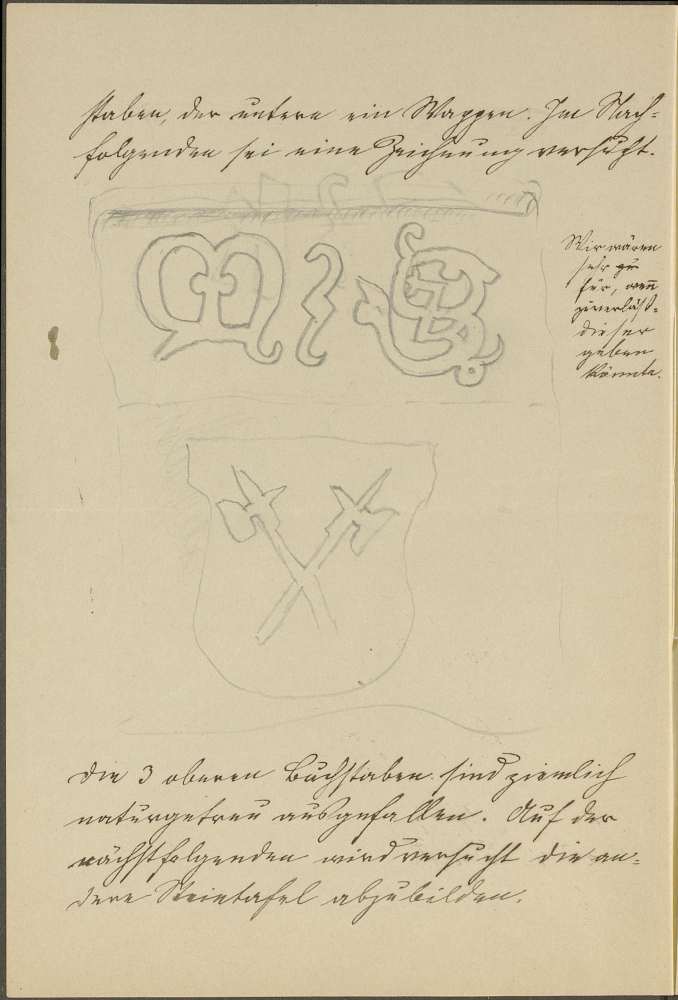 staben, der untere ein Wappen. Im Nach-
folgenden sei eine Zeichnung versucht.
Wir wären
sehr
für, wen̄
zuverläss-
dieser
geben
könnte.
M S B
Die 3 oberen Buchstaben sind ziemlich
naturgetreu ausgefallen. Auf der
nächstfolgenden wird versucht die an-
dere Steintafel abzubilden.